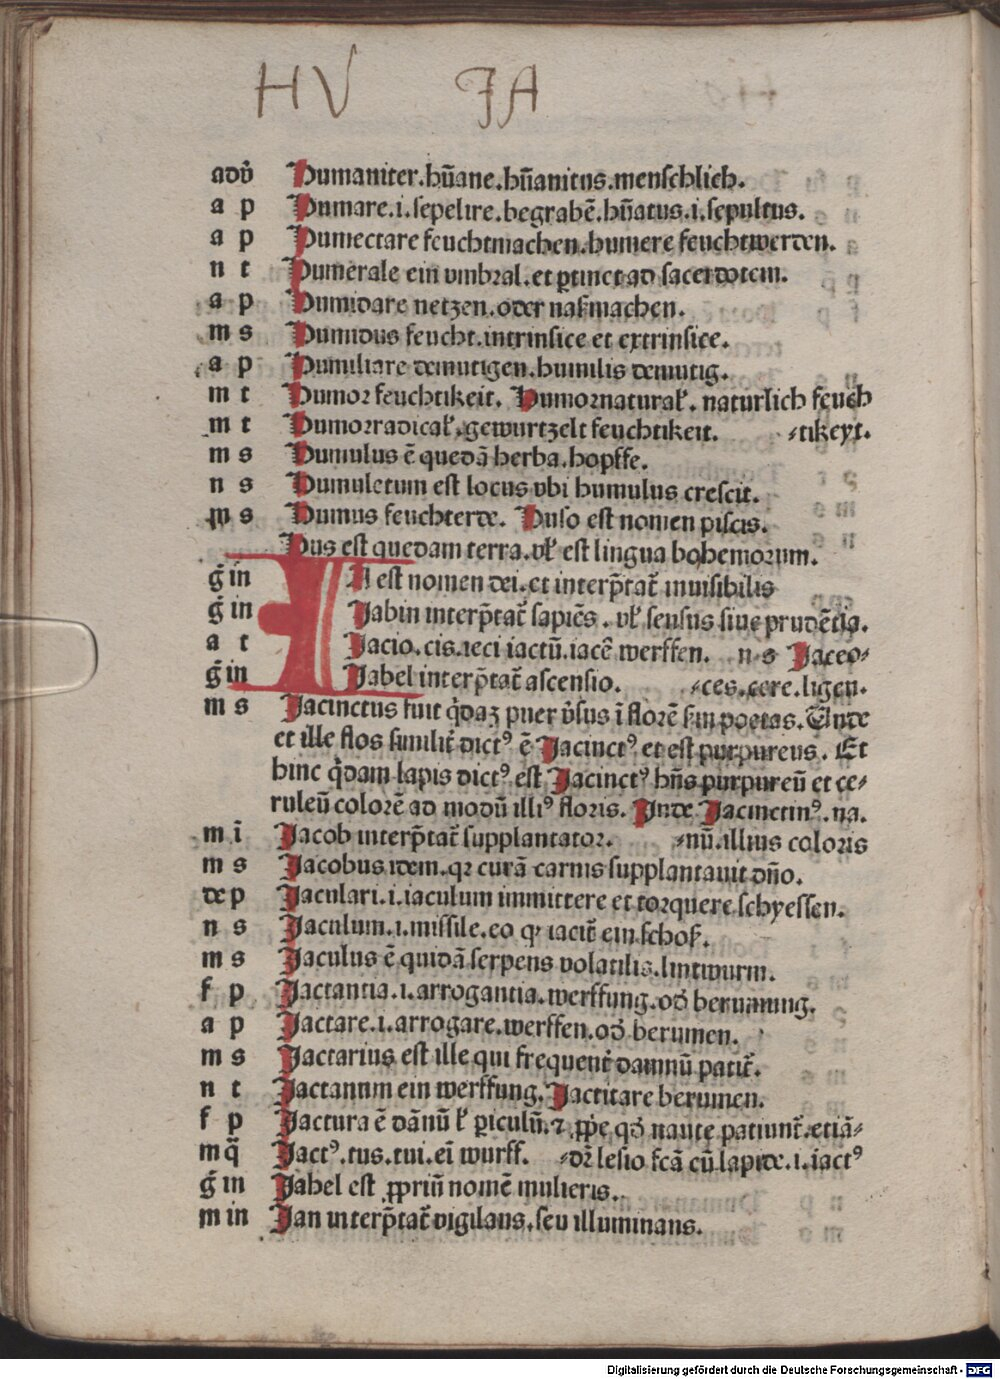 HV JA
adv̉ Humaniter.hūane.hūanitus.menſchlich.
a p Humare.i.ſepelire.begrabē.hūatus.i.ſepultus.
a p Humectare feuchtmachen.humere feuchtwerden.
n t Humerale ein vmbral.et ꝑtinet ad ſacerdotem.
a p Humidare netzen.oder naßmachen.
m s Humidus feucht.intrinſice et extrinſice.
a p Humiliare demutigen.humilis demutig.
m t Humor feuchtikeit. Humornaturaƚ. naturlich feuch
m t Humorradicaƚ.gewurtzelt feuchtikeit. ⸗tikeyt.
m s Humulus ē quedā herba.hopffe.
n s Humuletum eſt locus vbi humulus creſcit.
m s Humus feuchterde. Huſo eſt nomen piſcis.
Hus eſt quedam terra.vƚ eſt lingua bohemorum.
g̃ in IA eſt nomen dei.et interp̄tat̃ inuiſibilis
g̃ in Jabin interp̄tat̃ ſapiēs. vƚ ſenſus ſiue prudētia.
a t Jacio.cis.ieci iactū.iacē werffen. n s Jaceo⸗
g̃ in Jabel interp̄tat̃ aſcenſio. ⸗ces.cere.ligen.
m s Jacinctus fuit q̇daꝫ puer v̉ſus ī florē ſm poetas. Unde
et ille flos ſimilit̃ dictꝰ ē Jacinctꝰ et eſt purpureus. Et
hinc q̇dam lapis dictꝰ eſt Jacinctꝰ hn̄s purpureū et ce⸗
ruleū colorē ad modū illiꝰ floris. Inde Jacinctinꝰ.na.
m ī Jacob interp̄tat̃ ſupplantator. ⸗nū.illius coloris
m s Jacobus idem.qꝛ curā carnis ſupplantauit dn̄o.
de p Jaculari.i.iaculum immittere et torquere.ſchyeſſen.
n s Jaculum.i.miſſile.eo ꝙ iacit̃ ein ſchoß.
m s Jaculus ē quidā ſerpens volatilis.lintwurm.
f p Jactantia.i.arrogantia.werffung.od̓ berumung.
a p Jactare.i.arrogare.werffen.od̓ berumen.
m s Jactarius eſt ille qui frequent̉ damnū patit̃.
n t Jactamen ein werffung. Jactitare berumen.
f p Jactura ē dānū ƚ ꝑiculū.⁊ ꝓpe qd̓ naute patiunt̃.etiā⸗
m q̃ Jactꝰ.tus.tui.eī wurff. ⸗dr̄ leſio fcā cū lapide.i.iactꝰ
g̃ in Jahel eſt ꝓpriū nomē mulieris.
m in Jan interp̄tat̃ vigilans.ſeu illuminans.
Digitalisierung gefördert durch die Deutsche Forschungsgemeinschaft - DFG